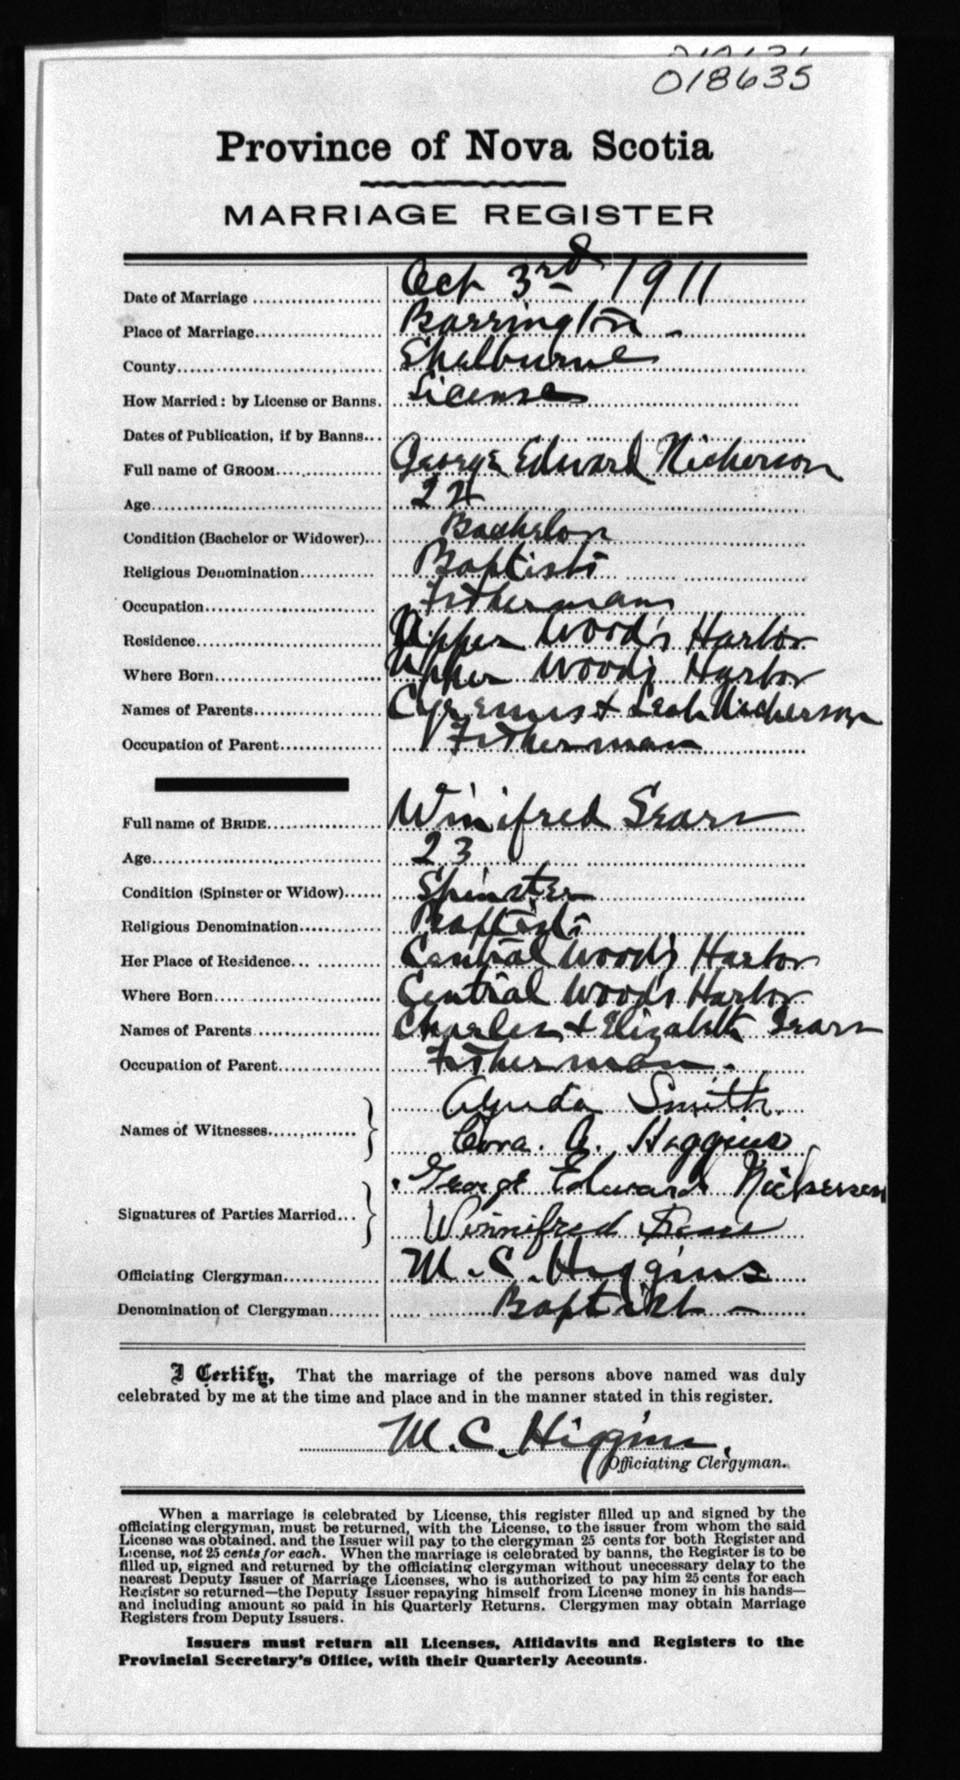 018635
Province of Nova Scotia
MARRIAGE REGISTER
Date of Marriage Oct 3rd 1911
Place of Marriage Barrington
County Shelburne
How Married: by License or Banns. License
Dates of Publication, if by Banns
Full name of GROOM George Edward Nickerson
Age 22
Condition (Bachelor or Widower) Bachelor
Religious Denomination Baptist
Occupation Fisherman
Residence Upper Wood's Harbor
Where Born Upper Woods Harbor
Names of Parents & Leah Nickerson
Occupation of Parent Fisherman
Full name of BRIDE Winifred Sears
Age 23
Condition (Spinster or Widow) Spinster
Religious Denomination Baptist
Her Place of Residence Central Wood's Harbor
Where Born Central Woods Harbor
Names of Parents Charles & Elizabeth Sears
Occupation of Parent Fisherman.
Names of Witnesses Smith.
Cora. A. Higgins
Signatures of Parties Married George Edward Nickerson
Winnifred Sears
Officiating Clergyman M. C. Higgins
Denomination of Clergyman Baptist
I Certify, That the marriage of the persons above named was duly
celebrated by me at the time and place and in the manner stated in this register.
M. C. Higgins
Officiating Clergyman.
When a marriage is celebrated by License, this register filled up and signed by the
officiating clergyman, must be returned, with the License, to the issuer from whom the said
License was obtained, and the Issuer will pay to the clergyman 25 cents for both Register and
License, not 25 cents for each. When the marriage is celebrated by banns, the Register is to be
filled up, signed and returned by the officiating clergyman without unnecessary delay to the
nearest Deputy Issuer of Marriage Licenses, who is authorized to pay him 25 cents for each
Register so returned—the Deputy Issuer repaying himself from License money in his hands—
and including amount so paid in his Quarterly Returns. Clergymen may obtain Marriage
Registers from Deputy Issuers.
Issuers must return all Licenses, Affidavits and Registers to the
Provincial Secretary's Office, with their Quarterly Accounts.